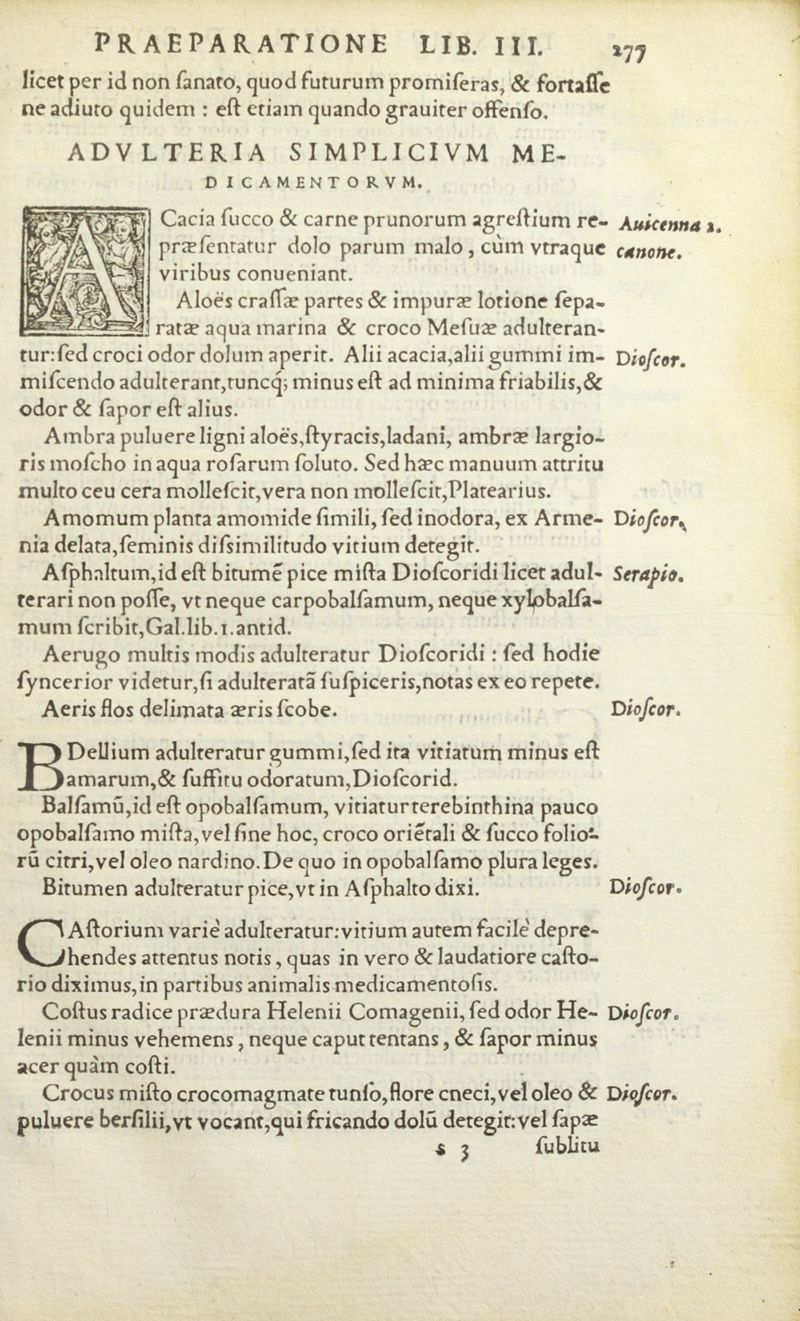 PRAEPARATIONE LIB. III. 277
licet per id non ſanato, quod futurum promiſeras, & fortaſſe
ne adiuto quidem : eſt etiam quando grauiter offenſo.
ADVLTERIA SIMPLICIVM ME-
DICAMENTORVM.
ACacia ſucco & carne prunorum agreſtium re- Auicenna 2.
præſentatur dolo parum malo, cùm vtraque canone.
viribus conueniant.
Aloës craſſæ partes & impuræ lotione ſepa-
ratæ aqua marina & croco Meſuæ adulteran-
tur: ſed croci odor dolum aperit. Alii acacia, alii gummi im- Dioſcor.
miſcendo adulterant, tuncq; minus eſt ad minima friabilis, &
odor & ſapor eſt alius.
Ambra puluere ligni aloës, ſtyracis, ladani, ambræ largio-
ris moſcho in aqua roſarum ſoluto. Sed hæc manuum attritu
multo ceu cera molleſcit, vera non molleſcit, Platearius.
Amomum planta amomide ſimili, ſed inodora, ex Arme- Dioſcor.
nia delata, ſeminis diſsimilitudo vitium detegit.
Aſphaltum, id eſt bitumē pice miſta Dioſcoridi licet adul- Serapio.
terari non poſſe, vt neque carpobalſamum, neque xylobalſa-
mum ſcribit, Gal. lib. 1. antid.
Aerugo multis modis adulteratur Dioſcoridi : ſed hodie
ſyncerior videtur, ſi adulteratā ſuſpiceris, notas ex eo repete.
Aeris flos delimata æris ſcobe. Dioſcor.
BDellium adulteratur gummi, ſed ita vitiatum minus eſt
amarum, & ſuffitu odoratum, Dioſcorid.
Balſamū, id eſt opobalſamum, vitiatur terebinthina pauco
opobalſamo miſta, vel ſine hoc, croco oriētali & ſucco folio-
rū citri, vel oleo nardino. De quo in opobalſamo plura leges.
Bitumen adulteratur pice, vt in Aſphalto dixi. Dioſcor.
CAſtorium variè adulteratur: vitium autem facilè depre-
hendes attentus notis, quas in vero & laudatiore caſto-
rio diximus, in partibus animalis medicamentoſis.
Coſtus radice prædura Helenii Comagenii, ſed odor He- Dioſcor.
lenii minus vehemens, neque caput tentans, & ſapor minus
acer quàm coſti.
Crocus miſto crocomagmate tunſo, flore cneci, vel oleo & Dioſcor.
puluere berſilii, vt vocant, qui fricando dolū detegit: vel ſapæ
s 3 ſublitu